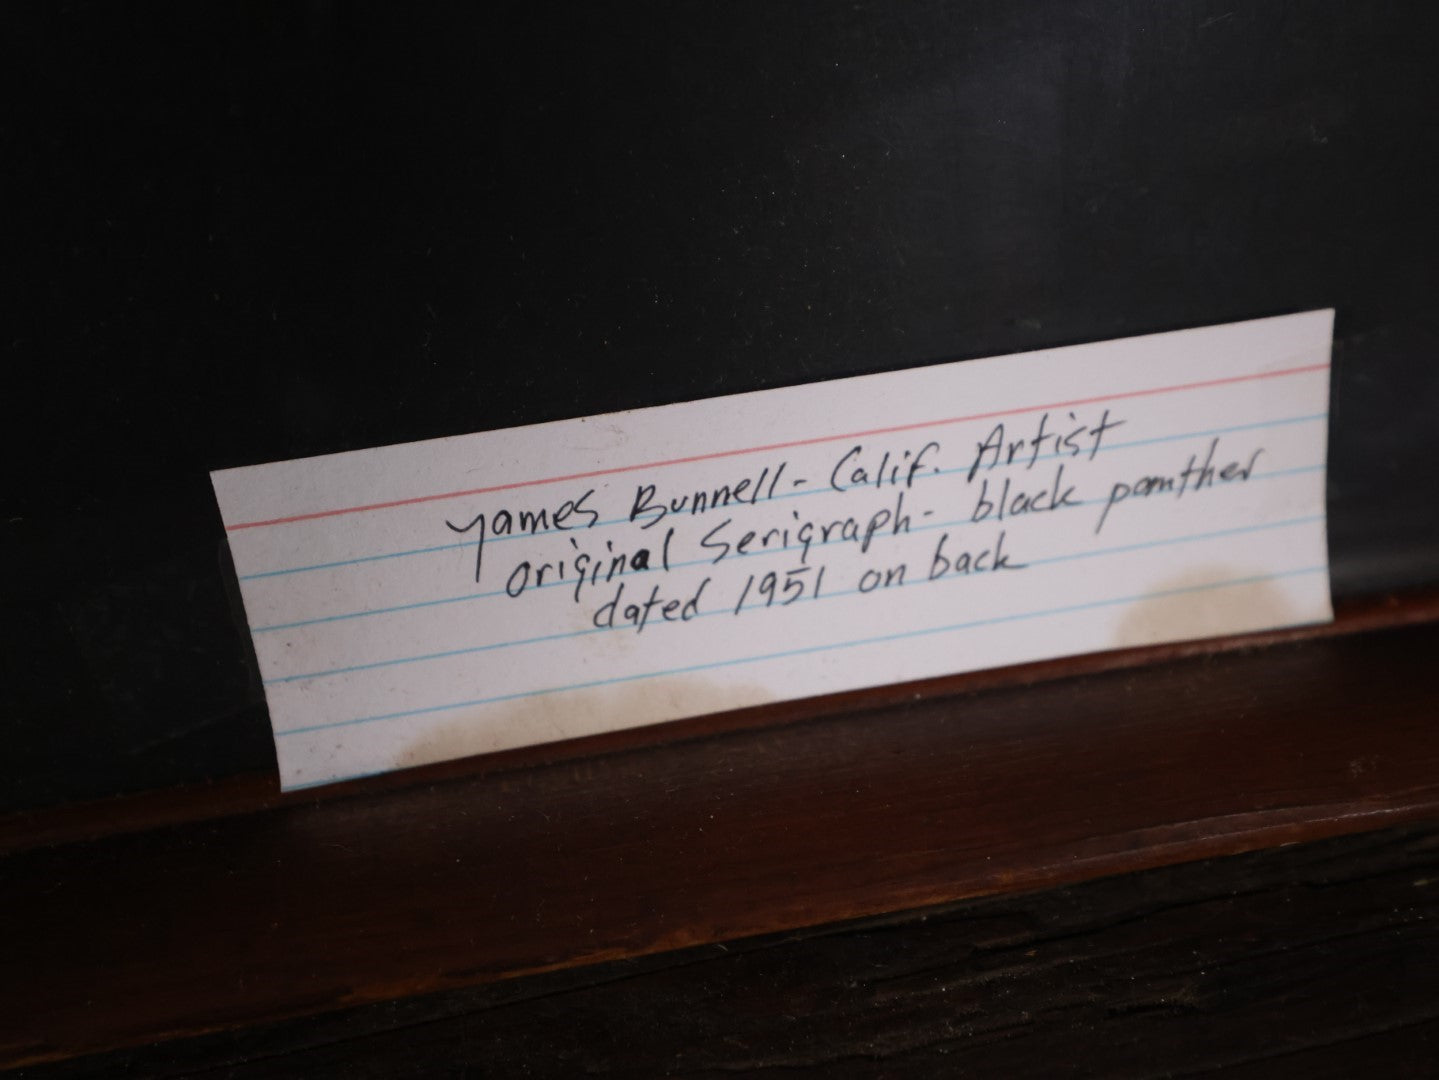 James Bunnell - Calif. Artist
original Serigraph - black panther
dated 1951 on back